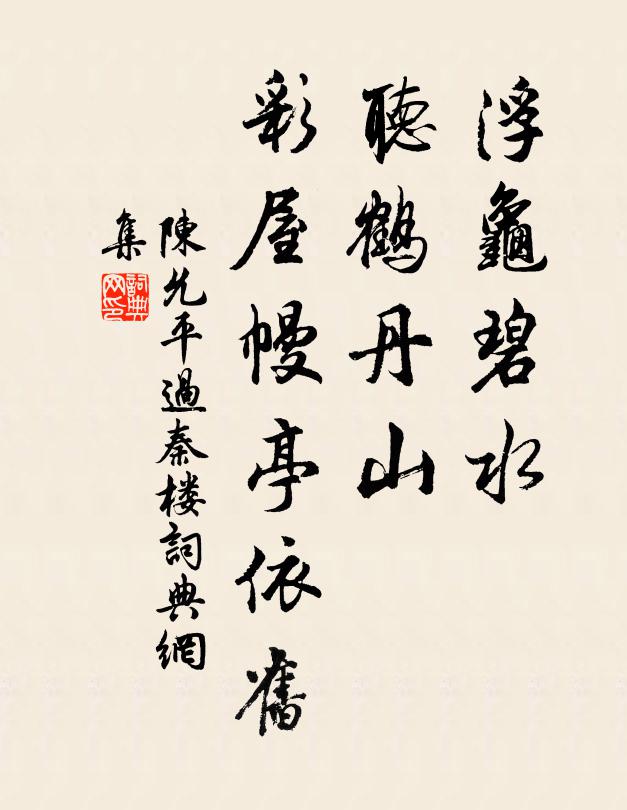 浮龜碧水
聽鶴丹山
彩屋幔亭依舊
陳允平過秦楼詞典網
集
詞典
网印